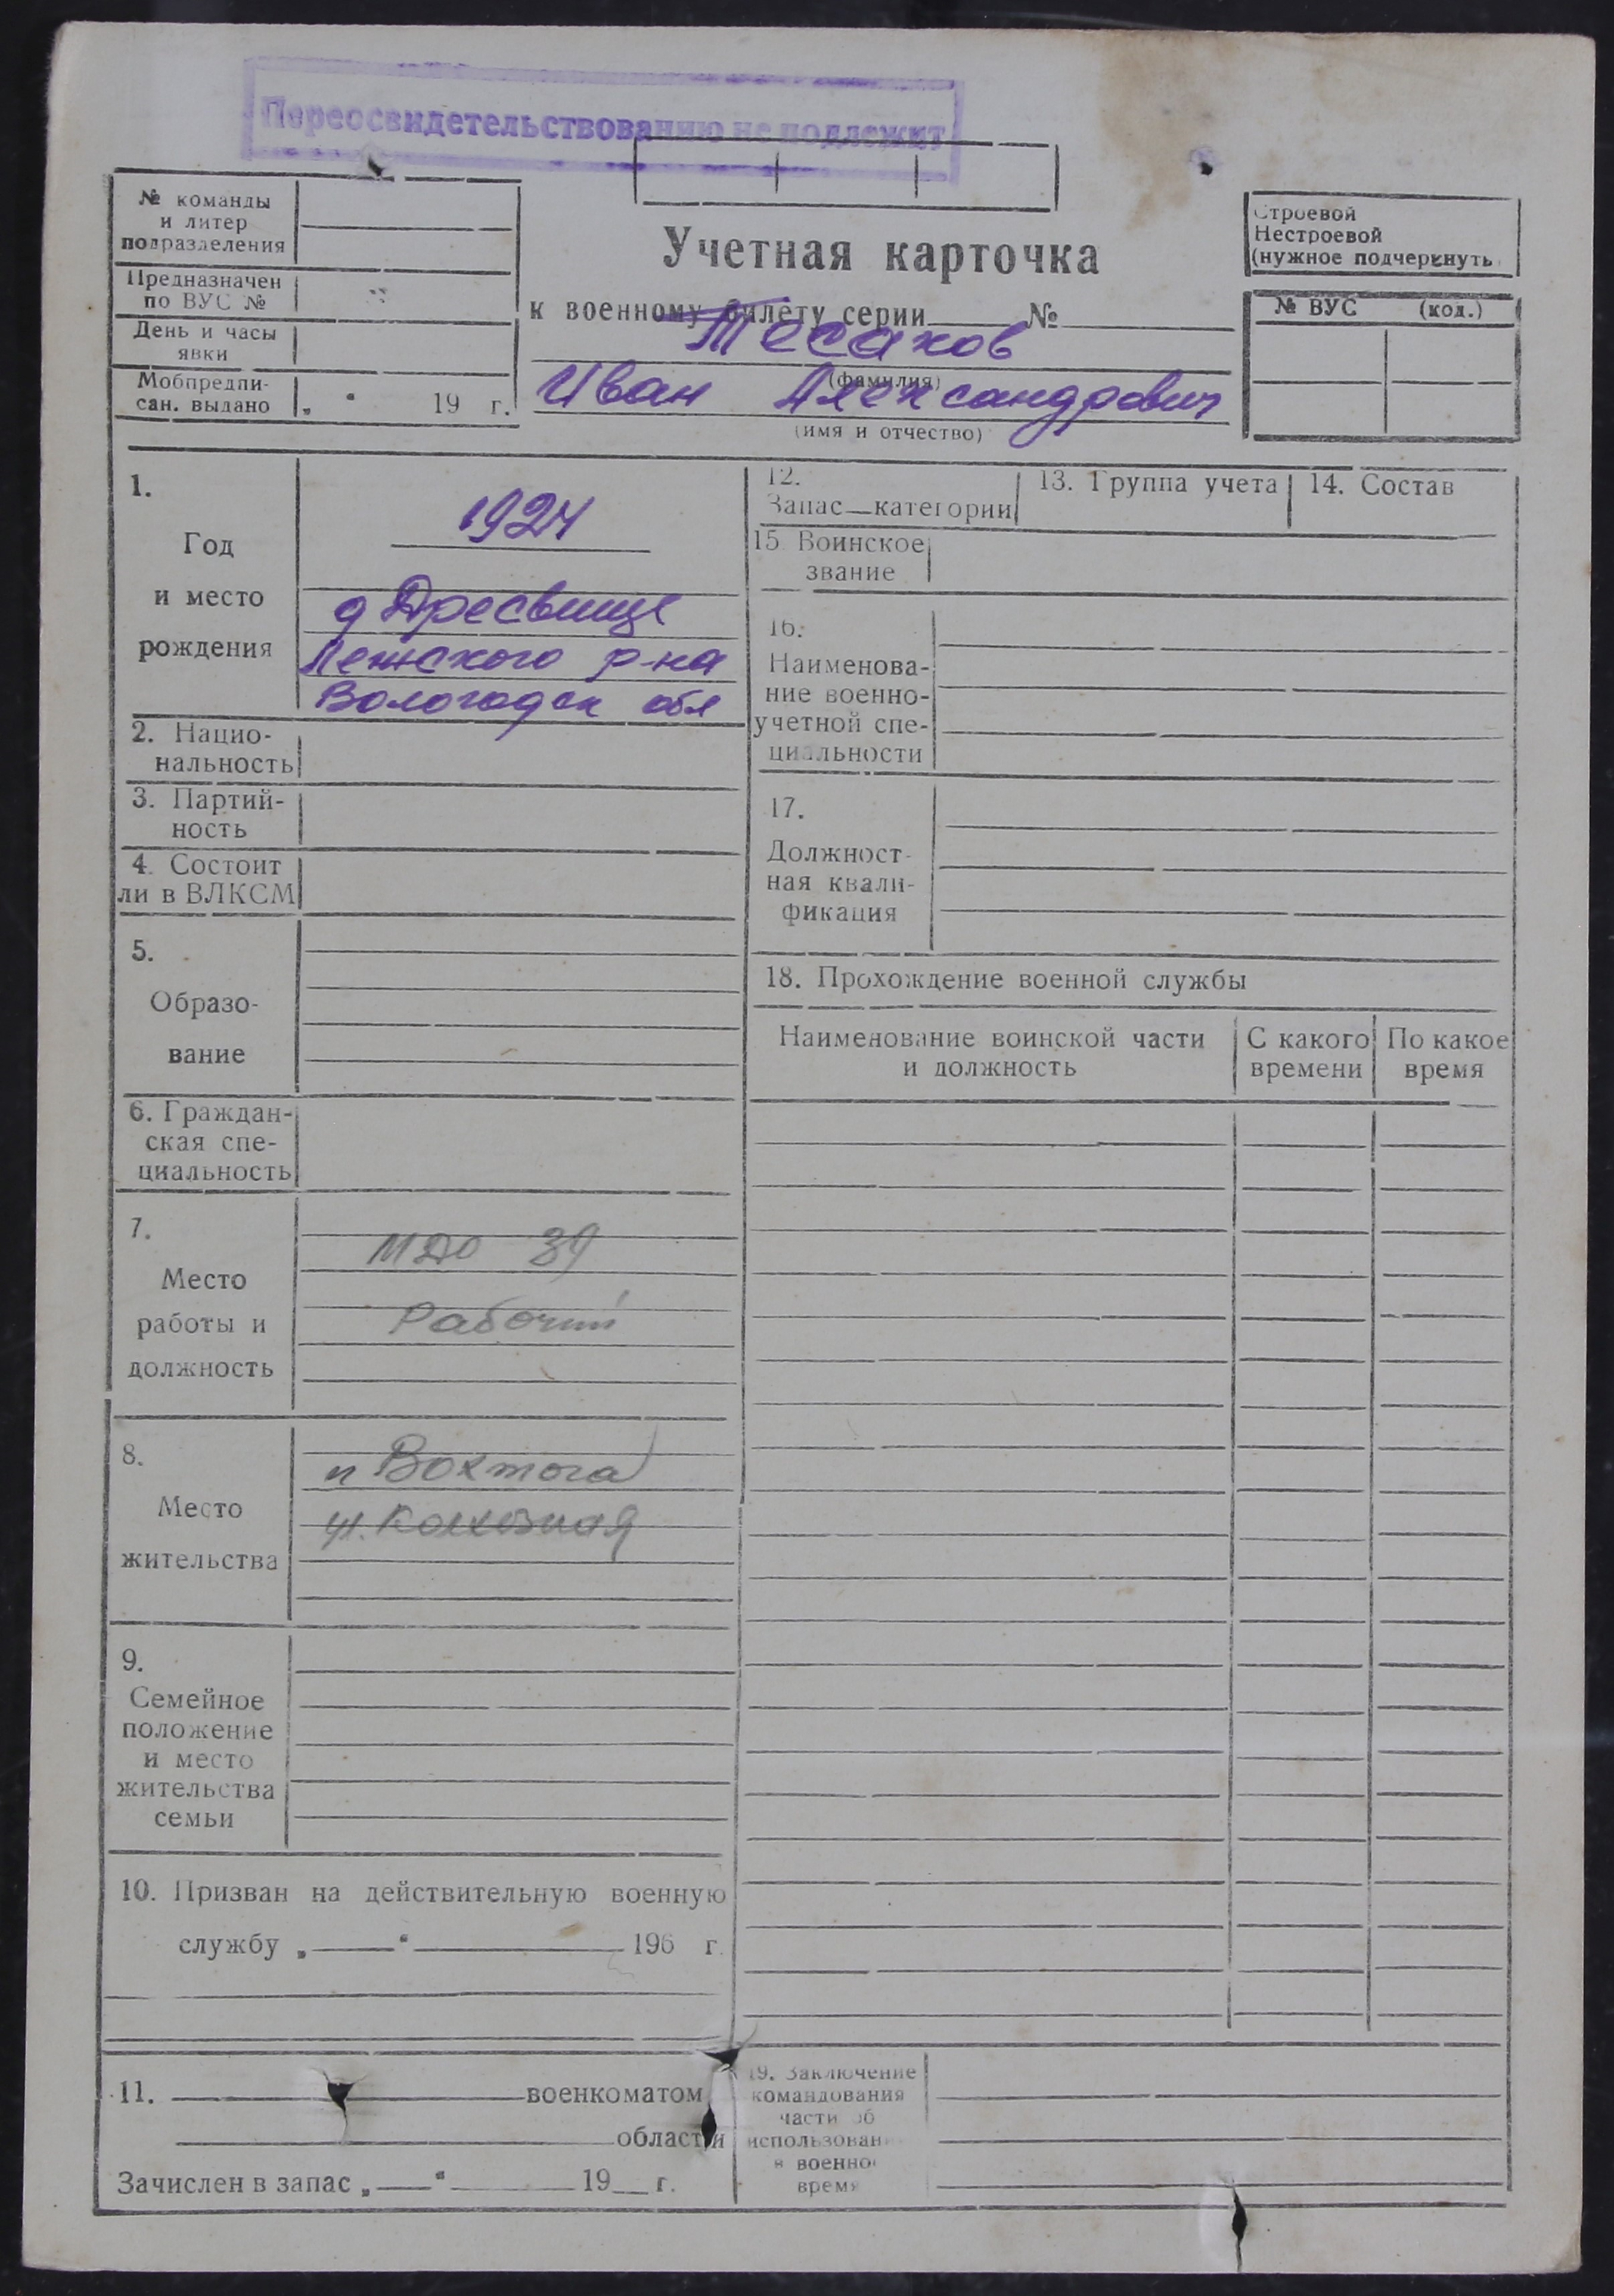 Переосвидетельствованию не подлежит
№ команды
и литер
подразделения
Предназначен
по ВУС №
День и часы
явки
Мобпредпи-
сан. выдано „ “ 19 г.
Учетная карточка
к военному билету серии №
Тесаков
(фамилия)
Иван Александрович
(имя и отчество)
Строевой
Нестроевой
(нужное подчеркнуть)
№ ВУС (код.)
1.
Год
и место
рождения
1924
д Дресвище
Лежского р-на
Вологодск обл
2. Нацио-
нальность
3. Партий-
ность
4. Состоит
ли в ВЛКСМ
5.
Образо-
вание
6. Граждан-
ская спе-
циальность
7.
Место
работы и
должность
МДО 39
Рабочий
8.
Место
жительства
п Вохтога
ул. Колхозная
9.
Семейное
положение
и место
жительства
семьи
10. Призван на действительную военную
службу „ “ 196 г.
11. военкоматом
области
Зачислен в запас „ “ 19 г.
12.
Запас категории
13. Группа учета
14. Состав
15. Воинское
звание
16.
Наименова-
ние военно-
учетной спе-
циальности
17.
Должност-
ная квали-
фикация
18. Прохождение военной службы
Наименование воинской части
и должность
С какого
времени
По какое
время
19. Заключение
командования
части об
использован
в военно
время